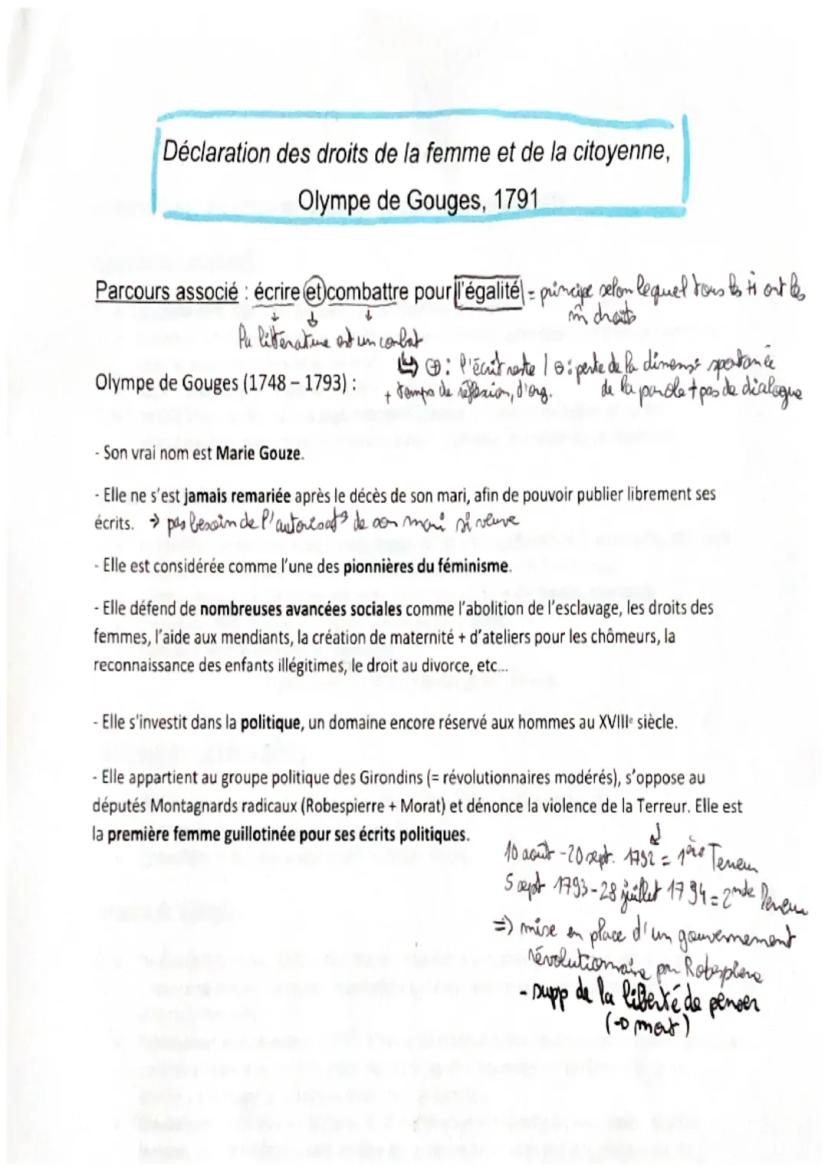 Déclaration des droits de la femme et de la citoyenne,
Olympe de Gouges, 1791
Parcours associé : écrire et combattre pour l'égalité = principe selon lequel tous les H ont les
m̂ droits
la littérature est un combat
↳ ⊕ : l'écrit reste / ⊖ : perte de la dimens° spontanée
+ temps de réflexion, d'org.
de la parole + pas de dialogue
Olympe de Gouges (1748 – 1793) :
- Son vrai nom est Marie Gouze.
- Elle ne s'est jamais remariée après le décès de son mari, afin de pouvoir publier librement ses
écrits. → pas besoin de l'autorisat° de son mari si veuve
- Elle est considérée comme l'une des pionnières du féminisme.
- Elle défend de nombreuses avancées sociales comme l'abolition de l'esclavage, les droits des
femmes, l'aide aux mendiants, la création de maternité + d'ateliers pour les chômeurs, la
reconnaissance des enfants illégitimes, le droit au divorce, etc...
- Elle s'investit dans la politique, un domaine encore réservé aux hommes au XVIIIe siècle.
- Elle appartient au groupe politique des Girondins (= révolutionnaires modérés), s'oppose au
députés Montagnards radicaux (Robespierre + Morat) et dénonce la violence de la Terreur. Elle est
la première femme guillotinée pour ses écrits politiques.
10 août - 20 sept. 1792 = 1ère Terreur
5 sept 1793 - 28 juillet 1794 = 2nde Terreur
=> mise en place d'un gouvernement
révolutionnaire par Robespierre
- supp de la liberté de penser
(→ mort)